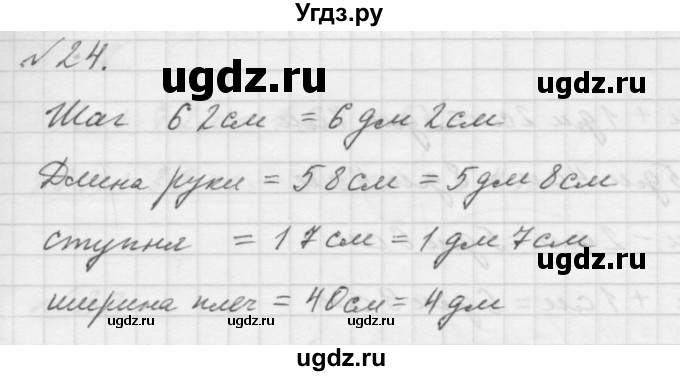 Угдз.ру
№24.
ugdz.ru
Шаг 62см = 6дм 2см
ugdz.ru
Длина руки = 58см = 5дм 8см
ступня = 17см = 1дм 7см
ugdz.ru
ширина плеч = 40см = 4дм
ugdz.ru ugdz.ru
ugdz.ru